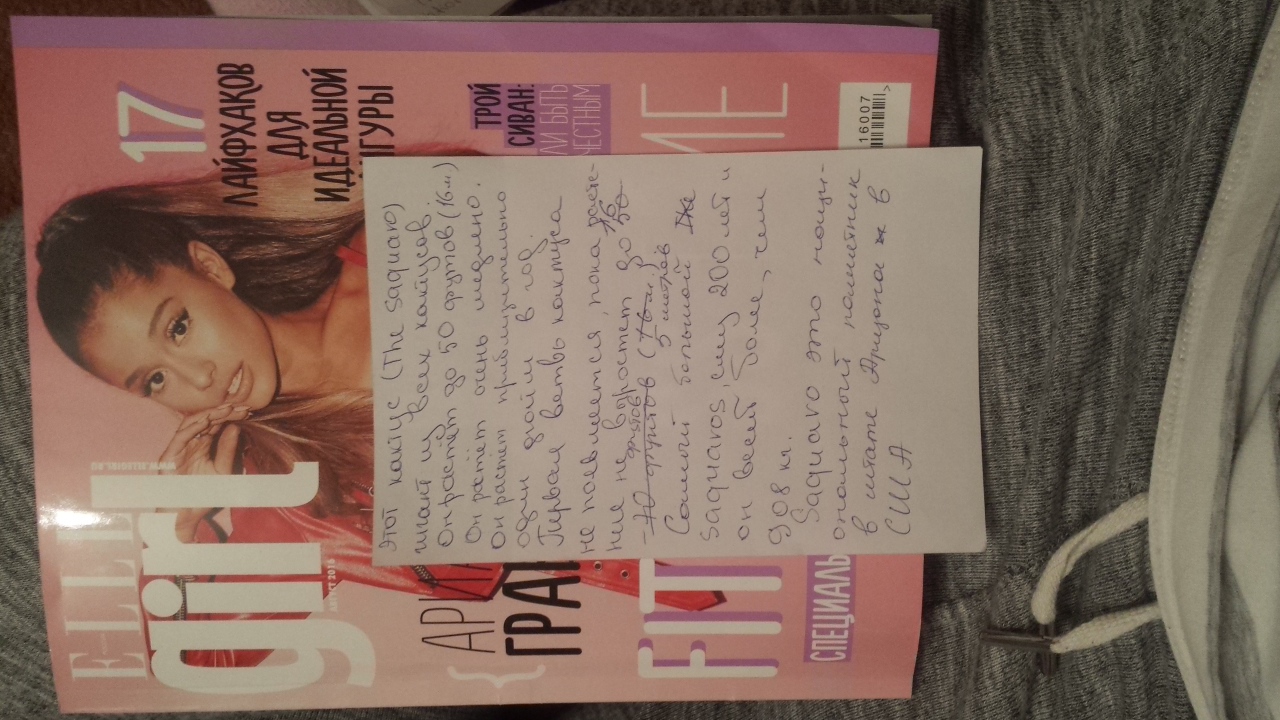 E-LLE
girl
WWW.ELLEGIRL.RU
АВГУСТ 2016
17
ЛАЙФХАКОВ
ДЛЯ
ИДЕАЛЬНОЙ
ИГУРЫ
ТРОЙ
СИВАН:
ЛИ БЫТЬ
ЧЕСТНЫМ
{АРИ
ГРАН
FIT
ME
СПЕЦИАЛЬ
16007
Этот кактус (The Saquaro)
гигант из всех кактусов.
Он растёт до 50 футов (16м)
Он ратёт очень медлено.
Он растёт приблизительно
один дюйм в год.
Первая ветвь кактуса
не появляется, пока расте-
ние не выростет до 16
футов (5 метров
Самый большой
Saquaros, ему 200 лет и
он весет более, чем
908 кг.
Saquaro это наци-
ональный паметник
в штате Аризона в
США